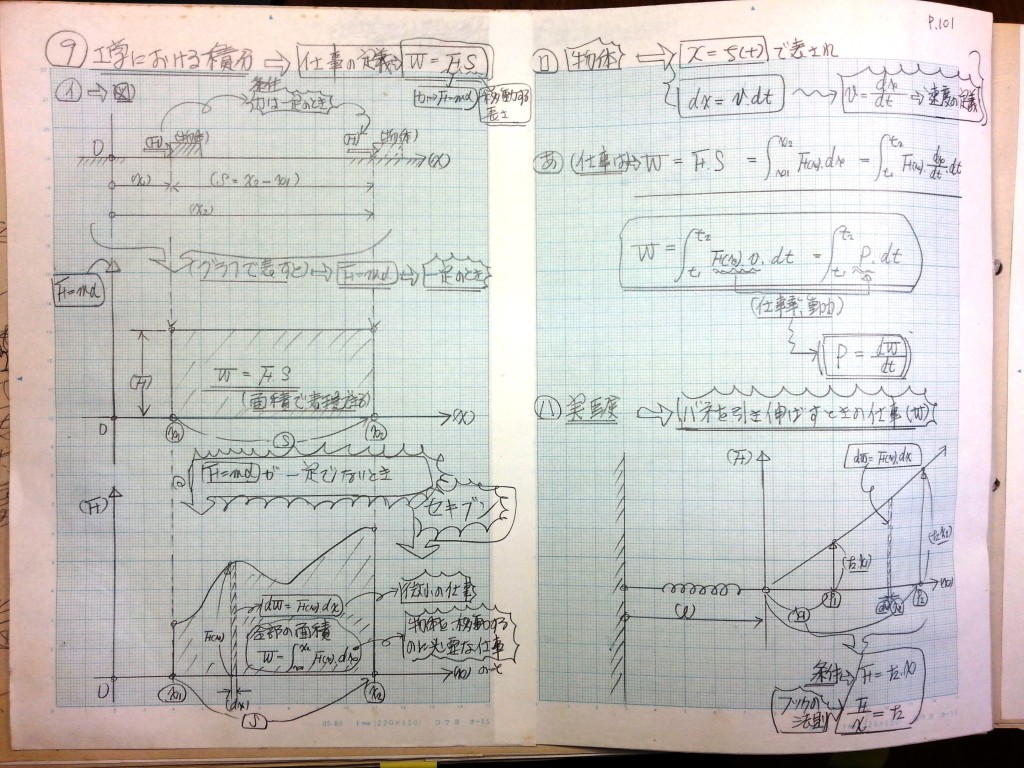 P.101
⑨ 工学における積分 ⇒ 仕事の定義 W = F.S
力⇒F=md
移動する
① → 図
条件
力は一定のとき
(F) (物体) (F) (物体)
O (x)
(x₁) (S = x₂ - x₁)
(x₂)
グラフで表すと ⇒ F=md ⇒ 一定のとき
F=md
(F)
W = F.S
(面積で表

O x₁ S x₂ (x)
F=md が一定でないとき
セキブン
(F)
F(x)
dW = F(x).dx
微小の仕事
全部の面積
W = ∫ₓ₁ˣ² F(x).dx
物体を移動する
のに必要な仕事
O x₁ (dx) x₂
S
ロ 物体 ⇐ x = S(t) で表され
dx = v.dt
v = dx/dt → 速度の定義
あ (仕事は) ⇒ W = F.S = ∫ₓ₁ˣ² F(x).dx = ∫ₜ₁ᵗ² F(x).dx/dt.dt
W = ∫ₜ₁ᵗ² F(x).v.dt = ∫ₜ₁ᵗ² P.dt
(仕事率,動力)
P = dW/dt
ハ 実験 ⇒ バネを引き伸ばすときの仕事(W)
(F)
dW = F(x).dx
(x)
条件 → F = k.x
フックの
法則
F/x = k
1mm (220×150) コクヨ ホ-15